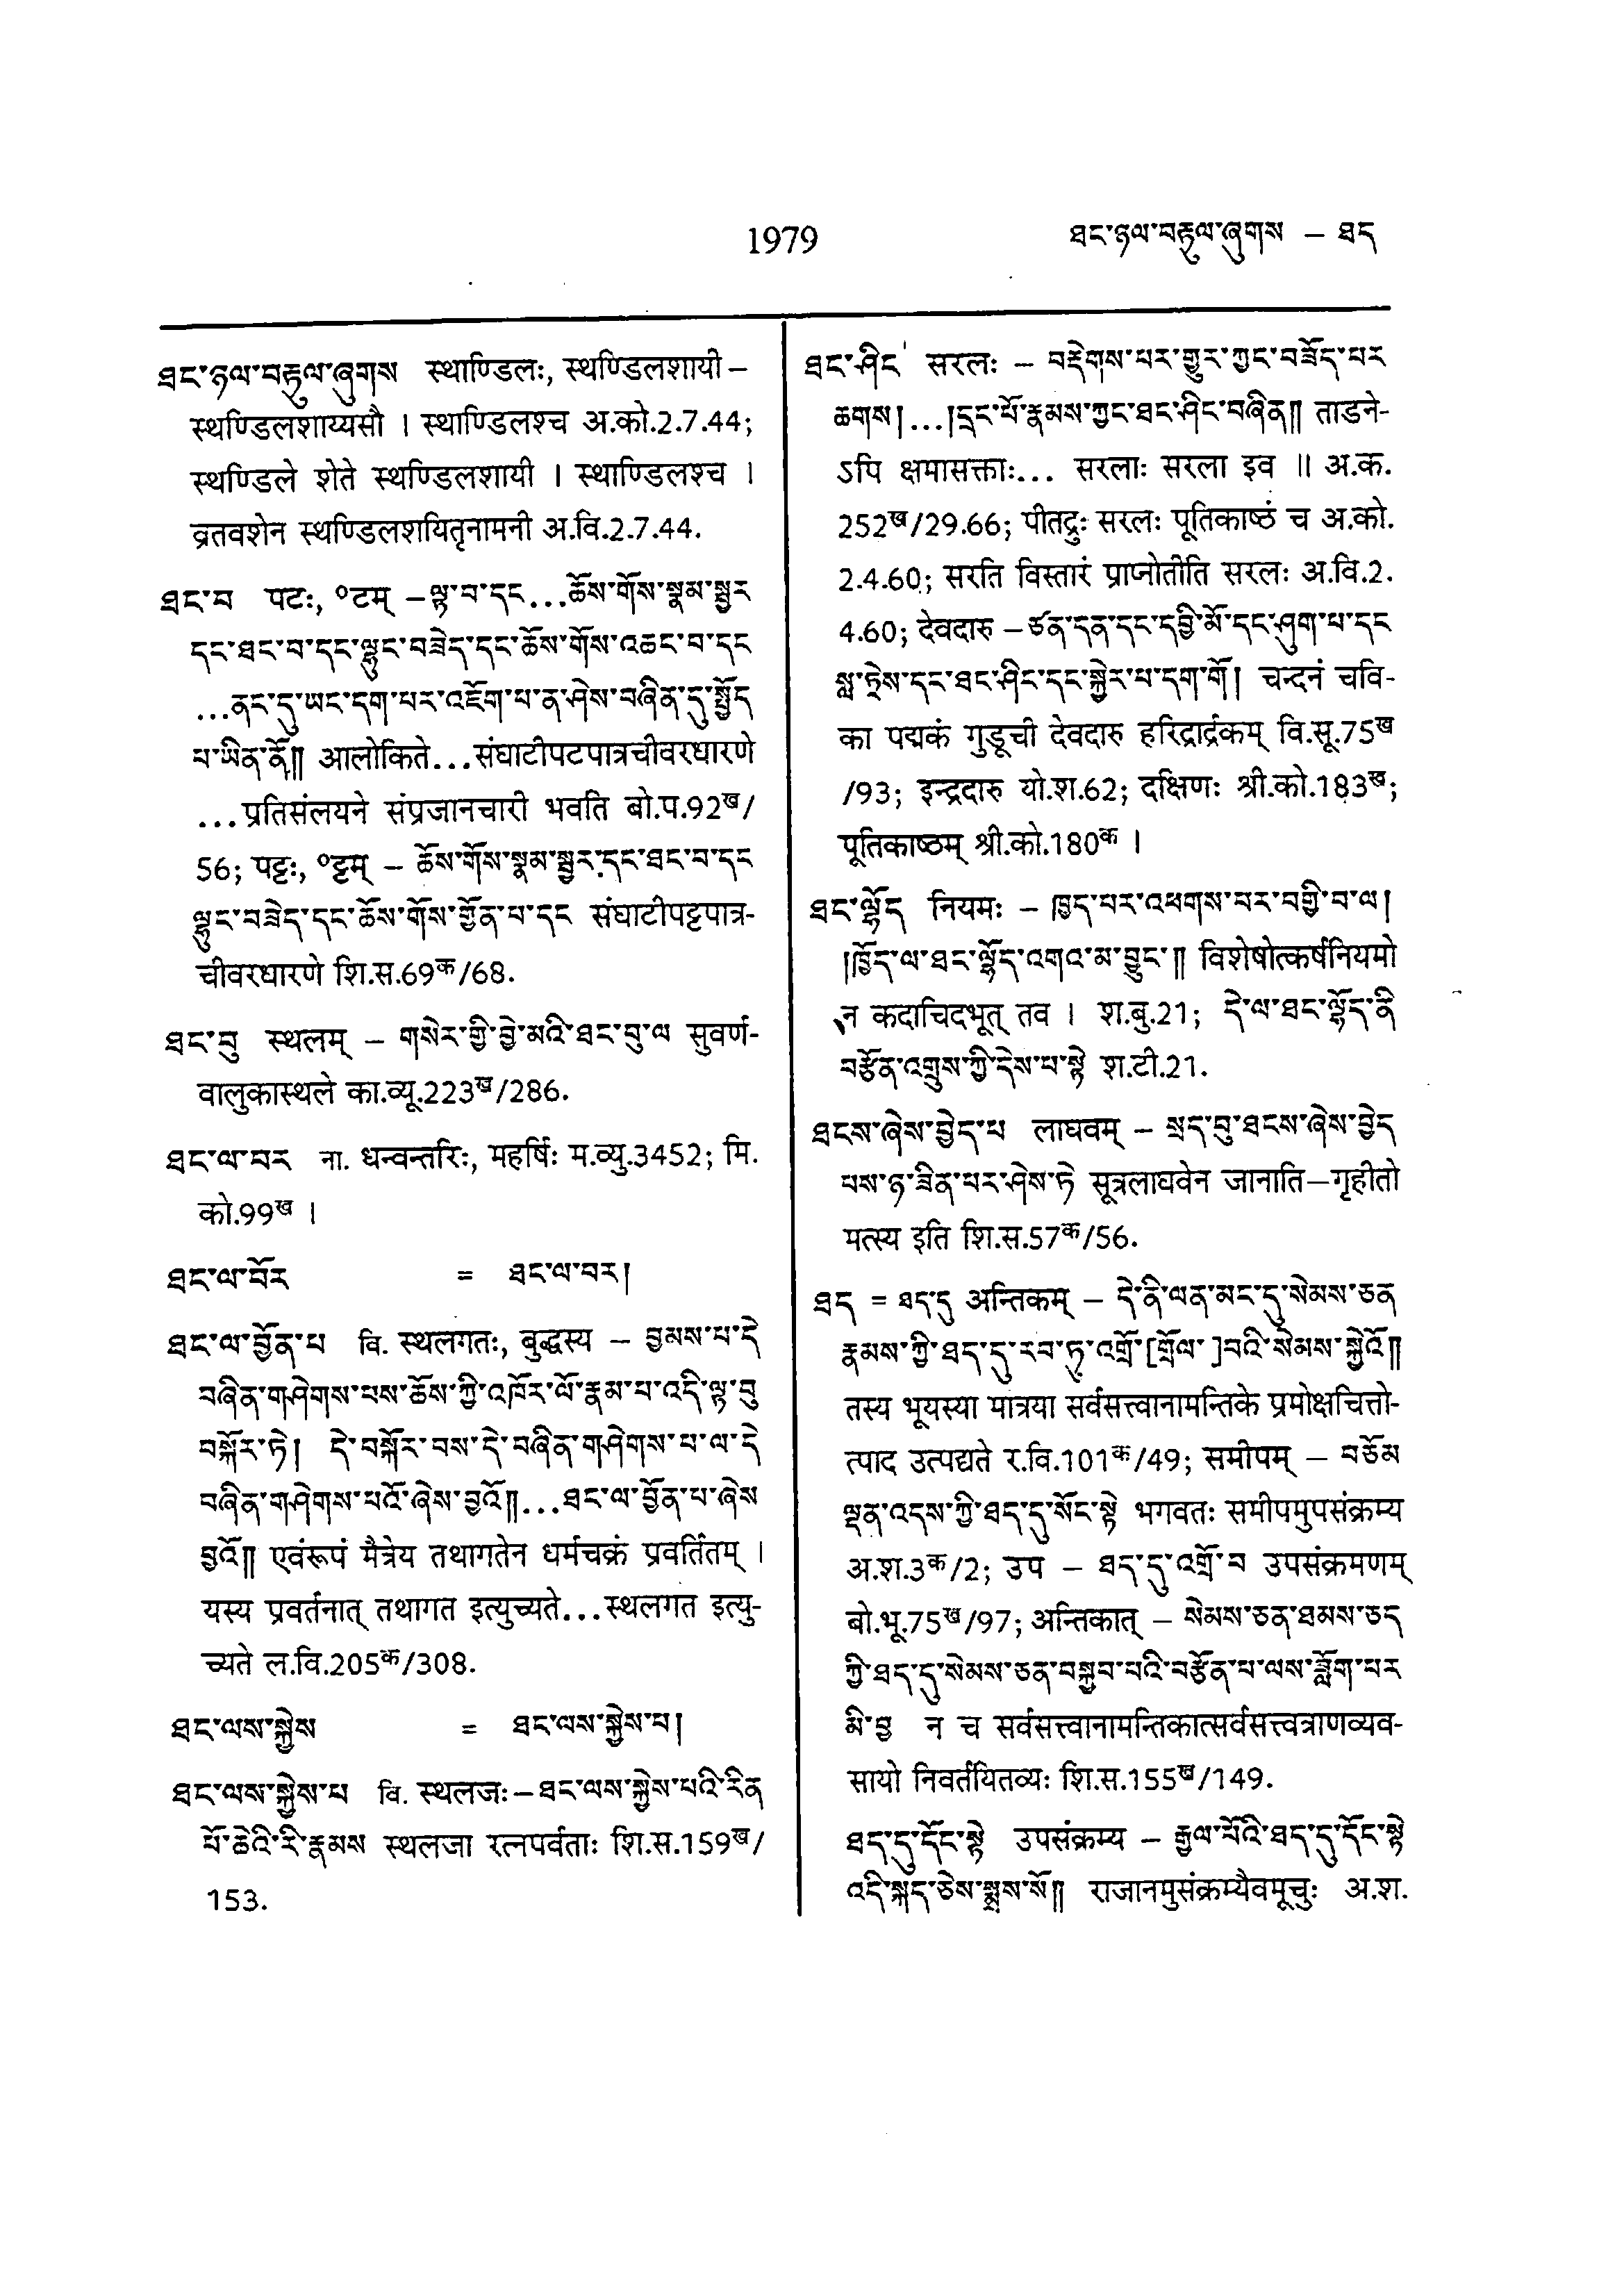 1979
ཐང་ཉལ་བརྟུལ་ཞུགས – ཐད
ཐང་ཉལ་བརྟུལ་ཞུགས स्थाण्डिलः, स्थण्डिलशायी –
स्थण्डिलशाय्यसौ । स्थाण्डिलश्च अ.को.2.7.44;
स्थण्डिले शेते स्थण्डिलशायी । स्थाण्डिलश्च ।
व्रतवशेन स्थण्डिलशयितृनामनी अ.वि.2.7.44.
ཐང་བ पटः, ०टम् – ལྟ་བ་དང...ཆོས་གོས་སྣམ་སྦྱར
དང་ཐང་བ་དང་ལྷུང་བཟེད་དང་ཆོས་གོས་འཆང་བ་དང
...ནང་དུ་ཡང་དག་པར་འཇོག་པ་ན་ཤེས་བཞིན་དུ་སྤྱོད
པ་ཡིན་ནོ༎ आलोकिते...संघाटीपटपात्रचीवरधारणे
...प्रतिसंलयने संप्रजानचारी भवति बो.प.92ख/
56; पट्टः, ०ट्टम् – ཆོས་གོས་སྣམ་སྦྱར་དང་ཐང་བ་དང
ལྷུང་བཟེད་དང་ཆོས་གོས་གྱོན་པ་དང संघाटीपट्टपात्र-
चीवरधारणे शि.स.69क/68.
ཐང་བུ स्थलम् – གསེར་གྱི་བྱེ་མའི་ཐང་བུ་ལ सुवर्ण-
वालुकास्थले का.व्यू.223ख/286.
ཐང་ལ་བར ना. धन्वन्तरिः, महर्षिः म.व्यु.3452; मि.
को.99ख ।
ཐང་ལ་བོར = ཐང་ལ་བར།
ཐང་ལ་བྱོན་པ वि. स्थलगतः, बुद्धस्य – བྱམས་པ་དེ
བཞིན་གཤེགས་པས་ཆོས་ཀྱི་འཁོར་ལོ་རྣམ་པ་འདི་ལྟ་བུ
བསྐོར་ཏེ། དེ་བསྐོར་བས་དེ་བཞིན་གཤེགས་པ་ལ་དེ
བཞིན་གཤེགས་པའོ་ཞེས་བྱའོ༎...ཐང་ལ་བྱོན་པ་ཞེས
བྱའོ༎ एवंरूपं मैत्रेय तथागतेन धर्मचक्रं प्रवर्तितम् ।
यस्य प्रवर्तनात् तथागत इत्युच्यते...स्थलगत इत्यु-
च्यते ल.वि.205क/308.
ཐང་ལས་སྐྱེས = ཐང་ལས་སྐྱེས་པ།
ཐང་ལས་སྐྱེས་པ वि. स्थलजः – ཐང་ལས་སྐྱེས་པའི་རིན
པོ་ཆེའི་རི་རྣམས स्थलजा रत्नपर्वताः शि.स.159ख/
153.
ཐང་ཤིང सरलः – བརྡེགས་པར་གྱུར་ཀྱང་བཟོད་པར
ཆགས།...།དྲང་པོ་རྣམས་ཀྱང་ཐང་ཤིང་བཞིན༎ ताडने-
ऽपि क्षमासक्ताः... सरलाः सरला इव ॥ अ.क.
252ख/29.66; पीतद्रुः सरलः पूतिकाष्ठं च अ.को.
2.4.60; सरति विस्तारं प्राप्नोतीति सरलः अ.वि.2.
4.60; देवदारु – ཙན་དན་དང་དབྱི་མོ་དང་ཤུག་པ་དང
སླ་ཏྲེས་དང་ཐང་ཤིང་དང་སྐྱེར་པ་དག་གོ། चन्दनं चवि-
का पद्मकं गुडूची देवदारु हरिद्रार्द्रकम् वि.सू.75ख
/93; इन्द्रदारु यो.श.62; दक्षिणः श्री.को.183ख;
पूतिकाष्ठम् श्री.को.180क ।
ཐང་ལྷོད नियमः – ཁྱད་པར་འཕགས་པར་བགྱི་བ་ལ།
།ཁྱོད་ལ་ཐང་ལྷོད་འགའ་མ་བྱུང་༎ विशेषोत्कर्षनियमो
न कदाचिदभूत् तव । श.बु.21; དེ་ལ་ཐང་ལྷོད་ནི
བརྩོན་འགྲུས་ཀྱི་དེས་པ་སྟེ श.टी.21.
ཐངས་ཞེས་བྱེད་པ लाघवम् – སྲད་བུ་ཐངས་ཞེས་བྱེད
པས་ཉ་ཟིན་པར་ཤེས་ཏེ सूत्रलाघवेन जानाति–गृहीतो
मत्स्य इति शि.स.57क/56.
ཐད = ཐད་དུ अन्तिकम् – དེ་ནི་ལན་མང་དུ་སེམས་ཅན
རྣམས་ཀྱི་ཐད་དུ་རབ་ཏུ་འགྲོ་[གྲོལ་]བའི་སེམས་སྐྱེའོ༎
तस्य भूयस्या मात्रया सर्वसत्त्वानामन्तिके प्रमोक्षचित्तो-
त्पाद उत्पद्यते र.वि.101क/49; समीपम् – བཅོམ
ལྡན་འདས་ཀྱི་ཐད་དུ་སོང་སྟེ भगवतः समीपमुपसंक्रम्य
अ.श.3क/2; उप – ཐད་དུ་འགྲོ་བ उपसंक्रमणम्
बो.भू.75ख/97; अन्तिकात् – སེམས་ཅན་ཐམས་ཅད
ཀྱི་ཐད་དུ་སེམས་ཅན་བསྐྱབ་པའི་བརྩོན་པ་ལས་ཟློག་པར
མི་བྱ न च सर्वसत्त्वानामन्तिकात्सर्वसत्त्वत्राणव्यव-
सायो निवर्तयितव्यः शि.स.155ख/149.
ཐད་དུ་དོང་སྟེ उपसंक्रम्य – རྒྱལ་པོའི་ཐད་དུ་དོང་སྟེ
འདི་སྐད་ཅེས་སྨྲས་སོ༎ राजानमुसंक्रम्यैवमूचुः अ.श.